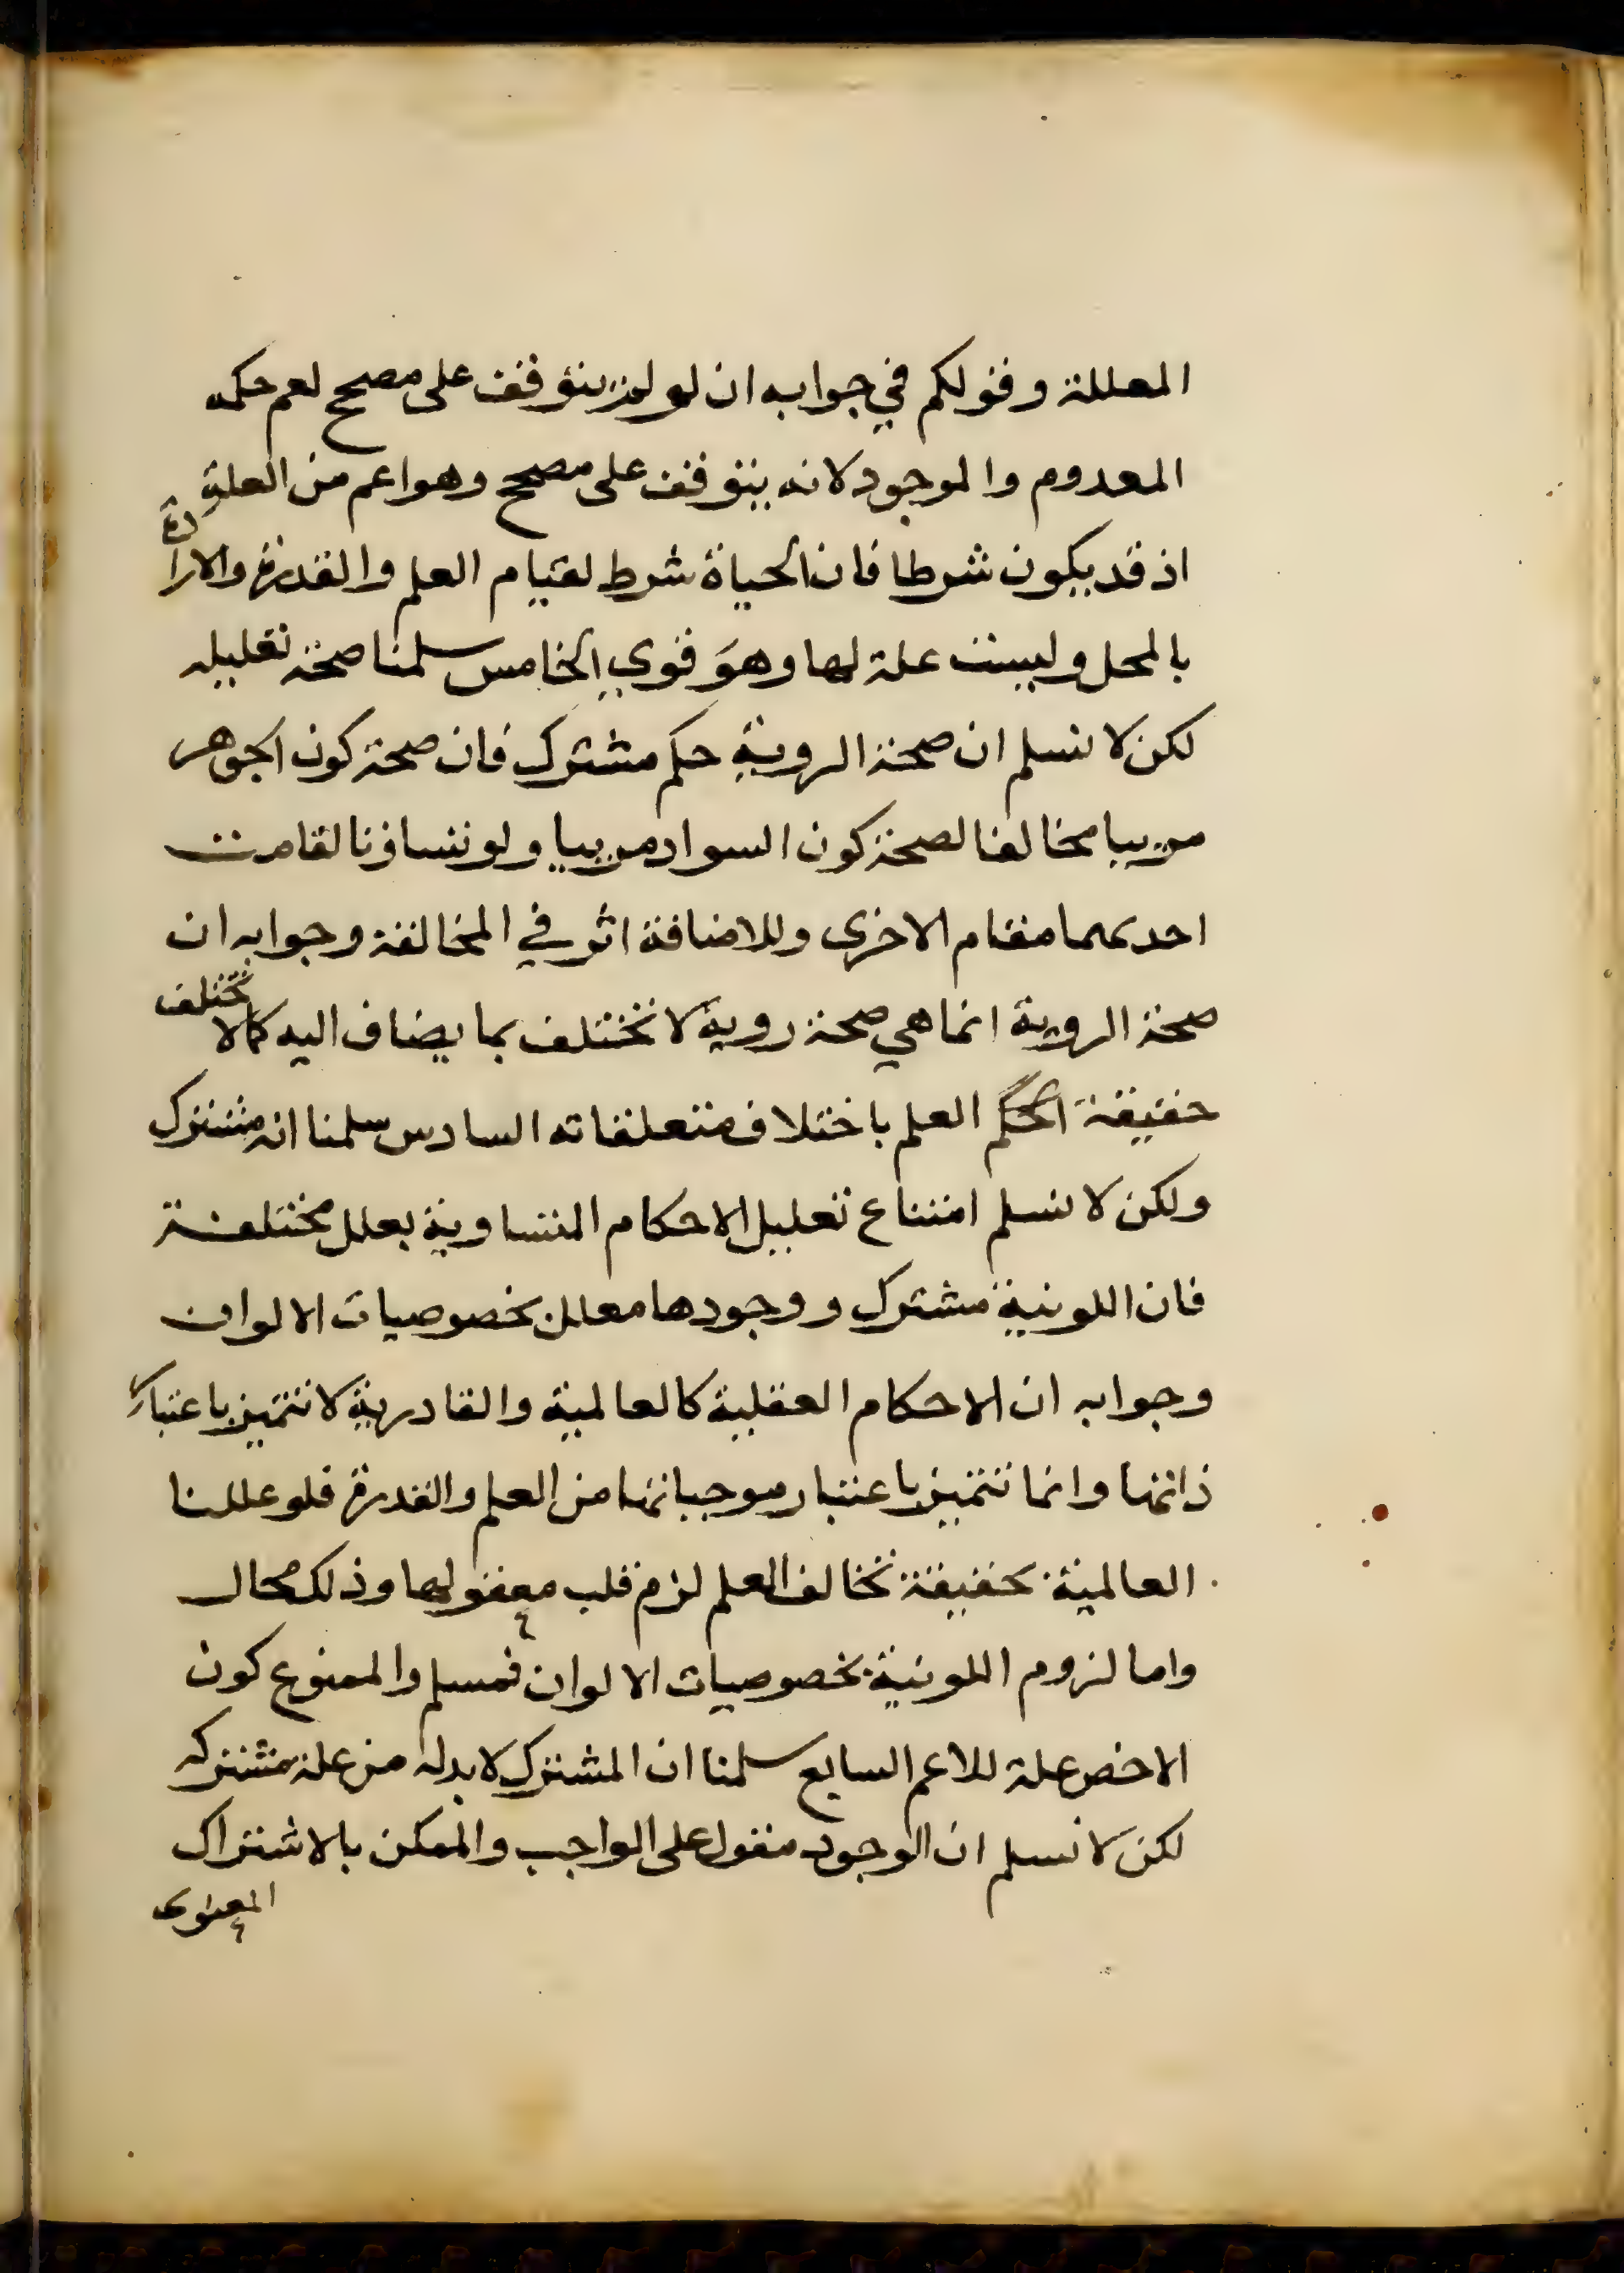 المعللة وقولكم في جوابه ان لو لم يتوقف على مصحح لعم حكمه
المعدوم والموجود لانه يتوقف على مصحح وهو اعم من العلة
اذ قد يكون شرطا فان الحياة شرط لقيام العلم والقدرة والارادة
بالمحل وليست علة لها وهو قوي الخامس سلمنا صحة تعليله
لكن لا نسلم ان صحة الروية حكم مشترك فان صحة كون الجوهر
مرييا مخالفا لصحة كون السواد مرييا ولو تساوتا لقامت
احديهما مقام الاخرى وللاضافة اثر في المخالفة وجوابه ان
صحة الروية انما هي صحة روية لا تختلف بما يضاف اليه كما لا تختلف
حقيقة الحكم العلم باختلاف متعلقاته السادس سلمنا انه مشترك
ولكن لا نسلم امتناع تعليل الاحكام المتساوية بعلل مختلفة
فان اللونية مشترك ووجودها معلل بخصوصيات الالوان
وجوابه ان الاحكام العقلية كالعالمية والقادرية لا تتميز باعتبار
ذاتها وانما تتميز باعتبار موجباتها من العلم والقدرة فلو عللنا
العالمية بحقيقة تخالف العلم لزم قلب معقولها وذلك محال
واما لزوم اللونية بخصوصيات الالوان فمسلم والممنوع كون
الاخص علة للاعم السابع سلمنا ان المشترك لا بد له من علة مشتركه
لكن لا نسلم ان الوجود مقول على الواجب والممكن بالاشتراك
المعنوى